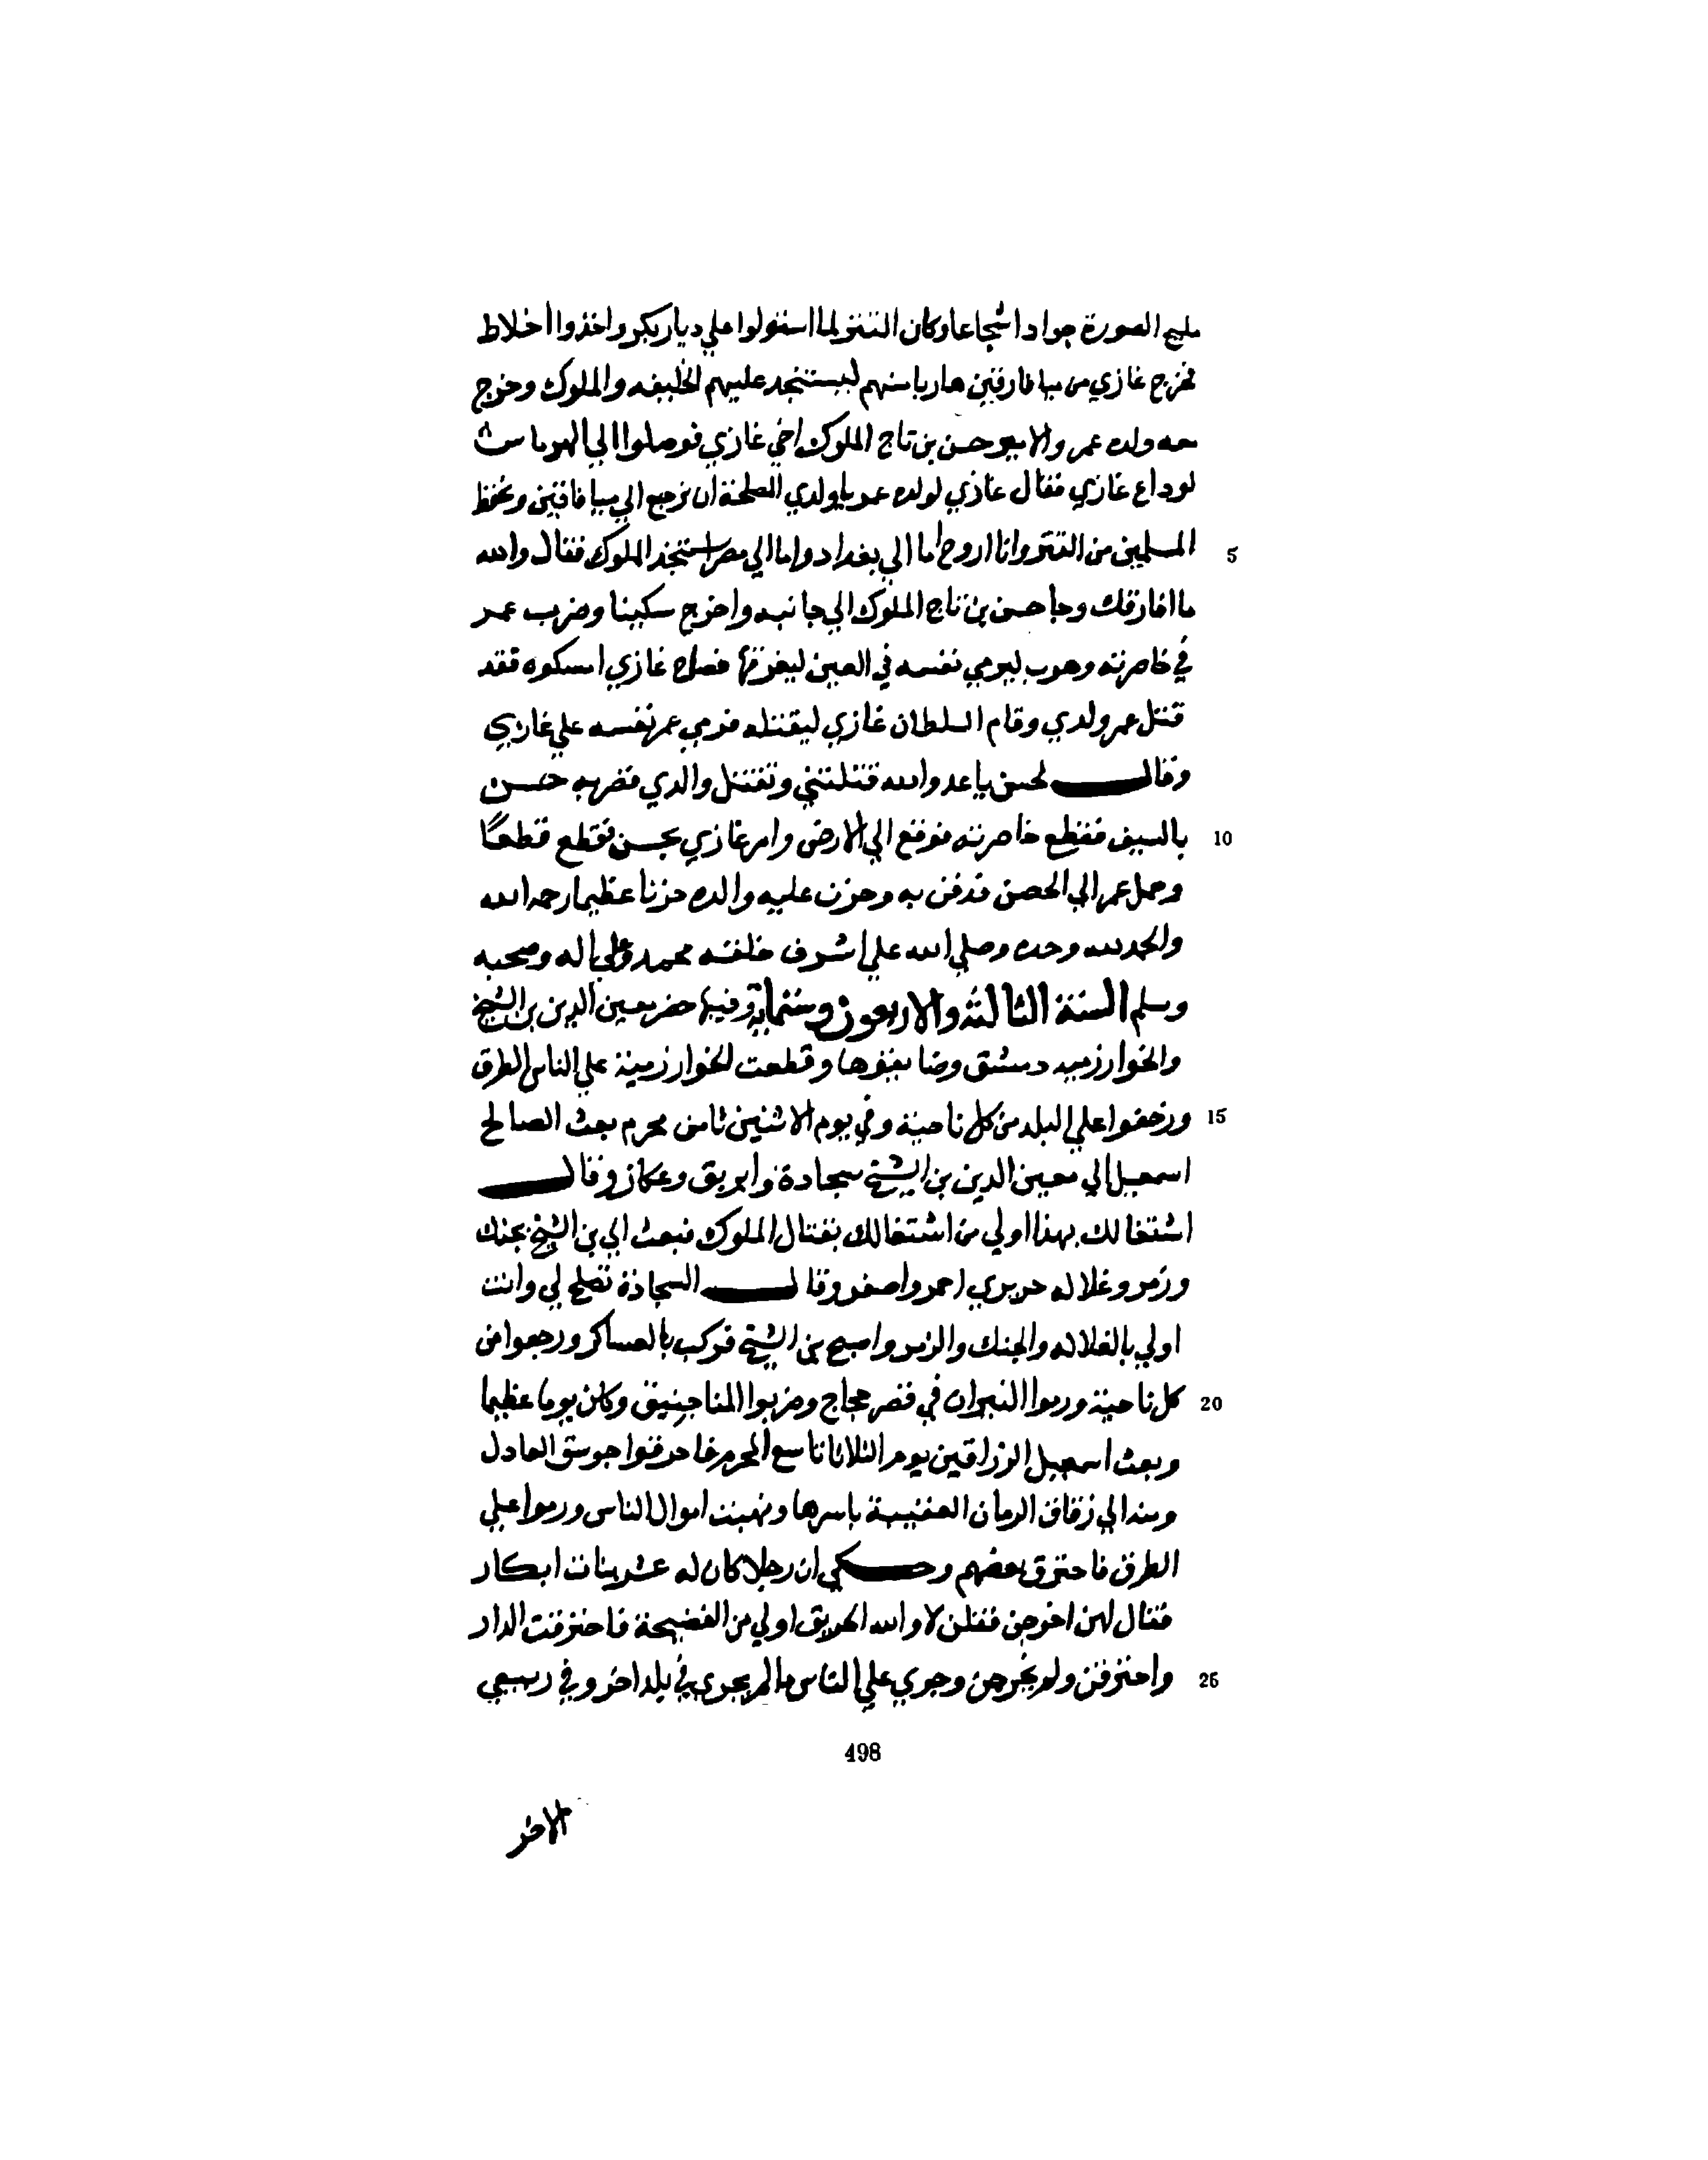 مليح الصورة جوادا شجاعا وكان التتر لما استولوا علي ديار بكر واخذوا اخلاط
فخرج غازي من ميافارقين هاربا منهم ليستنجد عليهم الخليفه والملوك وخرج
معه ولده عمر والامير حسن بن تاج الملوك اخي غازي فوصلوا الي الهرماس
لوداع غازي فقال غازي لولده عمر يا ولدي المصلحة ان ترجع الي ميافاقين وتحفظ
المسلمين من التتر وانا اروح اما الي بغداد واما الي مصر استنجد الملوك فقال والله
5
ما افارقك وجا حسن بن تاج الملوك الي جانبه واخرج سكينا وضرب عمر
في خاصرته وهرب ليرمي نفسه في العين ليغرقها فصاح غازي امسكوه فقد
قتل عمر ولدي وقام السلطان غازي ليقتله فرمي عمر نفسه علي غازي
وقال لحسن يا عدو الله قتلتني وتقتل والدي فضربه حسن
بالسيف فقطع خاصرته فوقع الي الارض وامر غازي بحسن فقطع قطعًا
10
وحمل عمر الي الحصن فدفن به وحزن عليه والده حزنا عظيما رحمه الله
والحمد لله وحده وصلي الله علي اشرف خلقه محمد وعلي اله وصحبه
وسلم السنة الثالثة والاربعون وستماية وفيها حضر معين الدين بن الشيخ
والخوارزميه دمشق وضايقوها وقطعت الخوارزمية علي الناس الطرق
وزحفوا علي البلد من كل ناحية وفي يوم الاثنين ثامن محرم بعث الصالح
15
اسمعيل الي معين الدين بن الشيخ سجادة وابريق وعكاز وقال
اشتغالك بهذا اولي من اشتغالك بقتال الملوك فبعث الي بن الشيخ بجنك
وزمر وغلاله حريري احمر واصفر وقال السجادة تصلح لي وانت
اولي بالغلاله والجنك والزمر واصبح بن الشيخ فركب بالعساكر ورجعوا من
كل ناحية ورموا النيران في قصر حجاج وضربوا المناجنيق وكان يوما عظيما
20
وبعث اسمعيل الزراقين يوم الثلاثا تاسع المحرم فاحرقوا جوسق العادل
ومنه الي زقاق الرمان العقيبة باسرها ونهبت اموال الناس ورموا علي
الطرق فاحترق بعضهم وحكي ان رجلا كان له عشر بنات ابكار
فقال لهن اخرجن فقلن لا والله الحريق اولي من الفضيحة فاحترقت الدار
واحترقن ولم يخرجن وجري علي الناس ما لم يجري في بلد اخر وفي ربيعي
25
498
الاخر